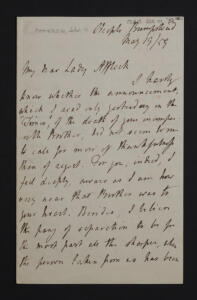 Steeple Bumpstead
May 19/59
My dear Lady Affleck
I hardly
know whether the announcement,
which I read only yesterday in the
'Times', of the death of your incompa-
rable Brother, did not seem to me
to call for more of thankfulness
than of regret. For you, indeed, I
feel deeply, aware as I am how
very near that Brother was to
your heart. Besides, I believe
the pang of separation to be for
the most part all the sharper, when
the person taken from us has been